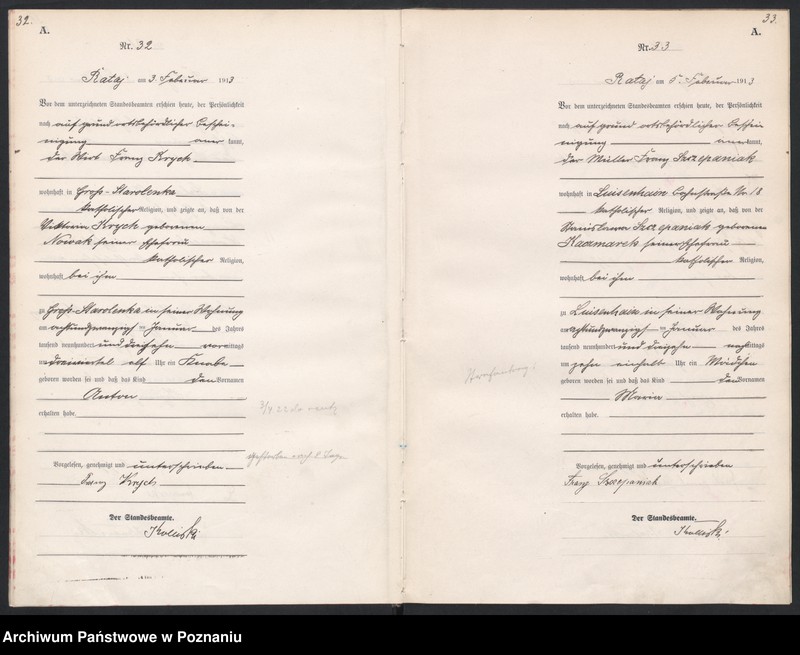 32.
A.
Nr. 32
Rataj am 3. Februar 1913
Vor dem unterzeichneten Standesbeamten erschien heute, der Persönlichkeit
nach auf grund ortsbehördlicher Beschei-
nigung anerkannt,
der Wirt Franz Krych
wohnhaft in Groß-Starolenka
katholischer Religion, und zeigte an, daß von der
Viktoria Krych geborenen
Nowak seiner Ehefrau
katholischer Religion,
wohnhaft bei ihm
zu Groß-Starolenka in seiner Wohnung
am achtundzwanzigst en Januar des Jahres
tausend neunhundert und dreizehn vormittags
um dreiviertel elf Uhr ein Knabe
geboren worden sei und daß das Kind den Vornamen
Anton
erhalten habe.
Vorgelesen, genehmigt und unterschrieben
Franz Krych
Der Standesbeamte.
33.
A.
Nr. 33
Rataj am 5. Februar 1913
Vor dem unterzeichneten Standesbeamten erschien heute, der Persönlichkeit
nach auf grund ortsbehördlicher Beschei
nigung anerkannt,
der Müller Franz Szczepaniak
wohnhaft in Luisenhain Nr. 18
katholischer Religion, und zeigte an, daß von der
Stanislawa Szczepaniak geborenen
Kaczmarek seiner Ehefrau
katholischer Religion,
wohnhaft bei ihm
zu Luisenhain in seiner Wohnung
am achtundzwanzigst en Januar des Jahres
tausend neunhundert und dreizehn nachmittags
um zehn einhalb Uhr ein Mädchen
geboren worden sei und daß das Kind den Vornamen
Maria
erhalten habe.
Vorgelesen, genehmigt und unterschrieben
Franz Szczepaniak
Der Standesbeamte.
Archiwum Państwowe w Poznaniu